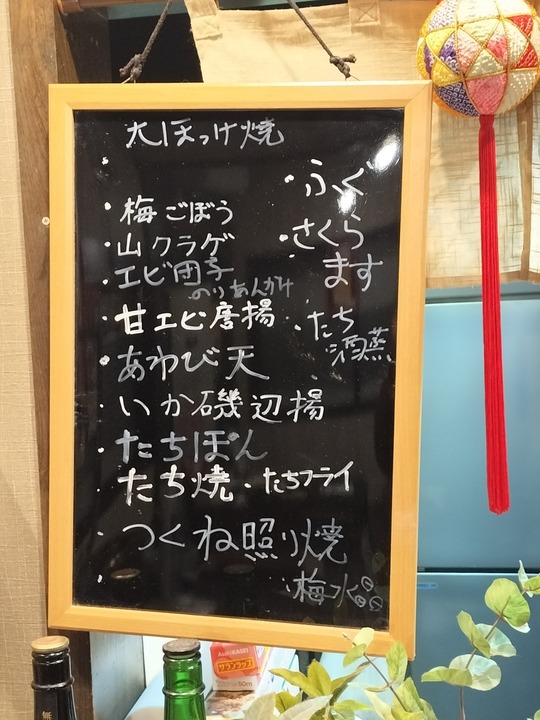 大ほっけ焼
・梅ごぼう
・山クラゲ
・エビ団子
のりあんかけ
・甘エビ唐揚
・あわび天
・いか磯辺揚
・たちぽん
・たち焼・たちフライ
・つくね照り焼
・梅水
・ふぐ
・さくら
ます
・たち
酒蒸
AsahiKASEI
サランラップ
50m
無